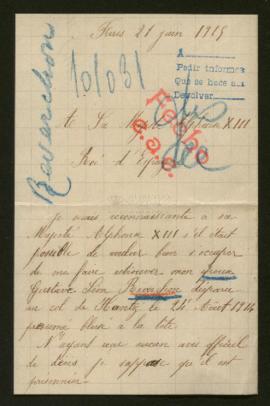 Paris 21 juin 1915
A
Pedir informes
Que se hace en
Devolver
Reverchon
101031
Fecho
A Sa Majesté Alphonse XIII
Roi d'Espagne
Je serais reconnaissante à sa
Majesté Alphonse XIII s'il était
possible de vouloir bien s'occuper
de me faire retrouver mon époux
Gustave Léon Reverchon disparu
au col de Hantz le 24 Août 1914
présumé blessé à la tête.
N'ayant reçu aucun avis officiel
de décès je suppose qu'il est
prisonnier.